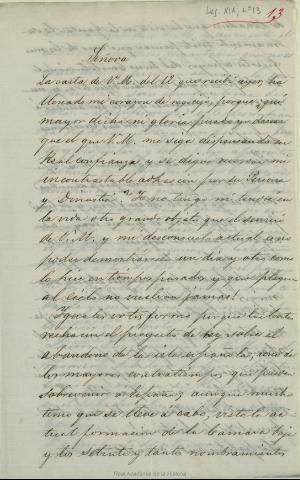 Leg. XIX, nº 13
13
Señora
La carta de V. M. del 12 que recibí ayer, ha
llenado mi corazon de regocijo, porque ¿qué
mayor dicha ni gloria puedo yo desear
que el que V. M. me siga dispensando su
Real confianza y se digne
incontrastable adhesion por su Persona
y Dinastia? Yo no tengo ni tendré en
la vida otro grande objeto que el servicio
de V. M. y mi desconsuelo actual es no
poder demostrarselo un dia y otro como
lo hice en tiempos pasados y que plegue
al Cielo no vuelvan jamas!
Iguales votos formo porque
rechacen el proyecto de ley sobre el
abandono de la isla española, uno de
los mayores que pueden
sobrevenir a España; aunque mucho
temo que se lleve a cabo, vista la ac-
tual formacion de la Cámara baja
y los setenta y tantos nombramientos
Real Academia de la Historia